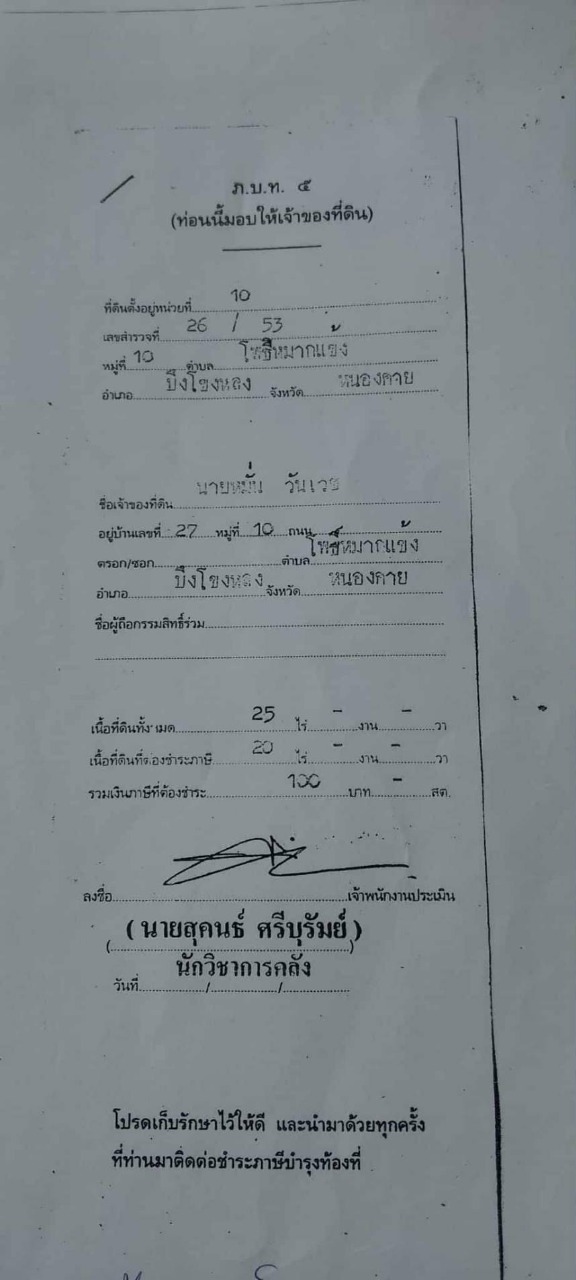 ภ.บ.ท. ๕
(ท่อนนี้มอบให้เจ้าของที่ดิน)
ที่ดินตั้งอยู่หน่วยที่ 10
เลขสำรวจที่ 26 / 53
หมู่ที่ 10 ตำบล โพธิ์หมากแข้ง
อำเภอ บึงโขงหลง จังหวัด หนองคาย
ชื่อเจ้าของที่ดิน นายหมั่น วันเวช
อยู่บ้านเลขที่ 27 หมู่ที่ 10 ถนน
ตรอก/ซอก ตำบล โพธิ์หมากแข้ง
อำเภอ บึงโขงหลง จังหวัด หนองคาย
ชื่อผู้ถือกรรมสิทธิ์ร่วม
เนื้อที่ดินทั้งหมด 25 ไร่ - งาน - วา
เนื้อที่ดินที่ต้องชำระภาษี 20 ไร่ - งาน - วา
รวมเงินภาษีที่ต้องชำระ 100 บาท - สต.
ลงชื่อ เจ้าพนักงานประเมิน
(นายสุคนธ์ ศรีบุรัมย์)
นักวิชาการคลัง
วันที่ / /
โปรดเก็บรักษาไว้ให้ดี และนำมาด้วยทุกครั้ง
ที่ท่านมาติดต่อชำระภาษีบำรุงท้องที่